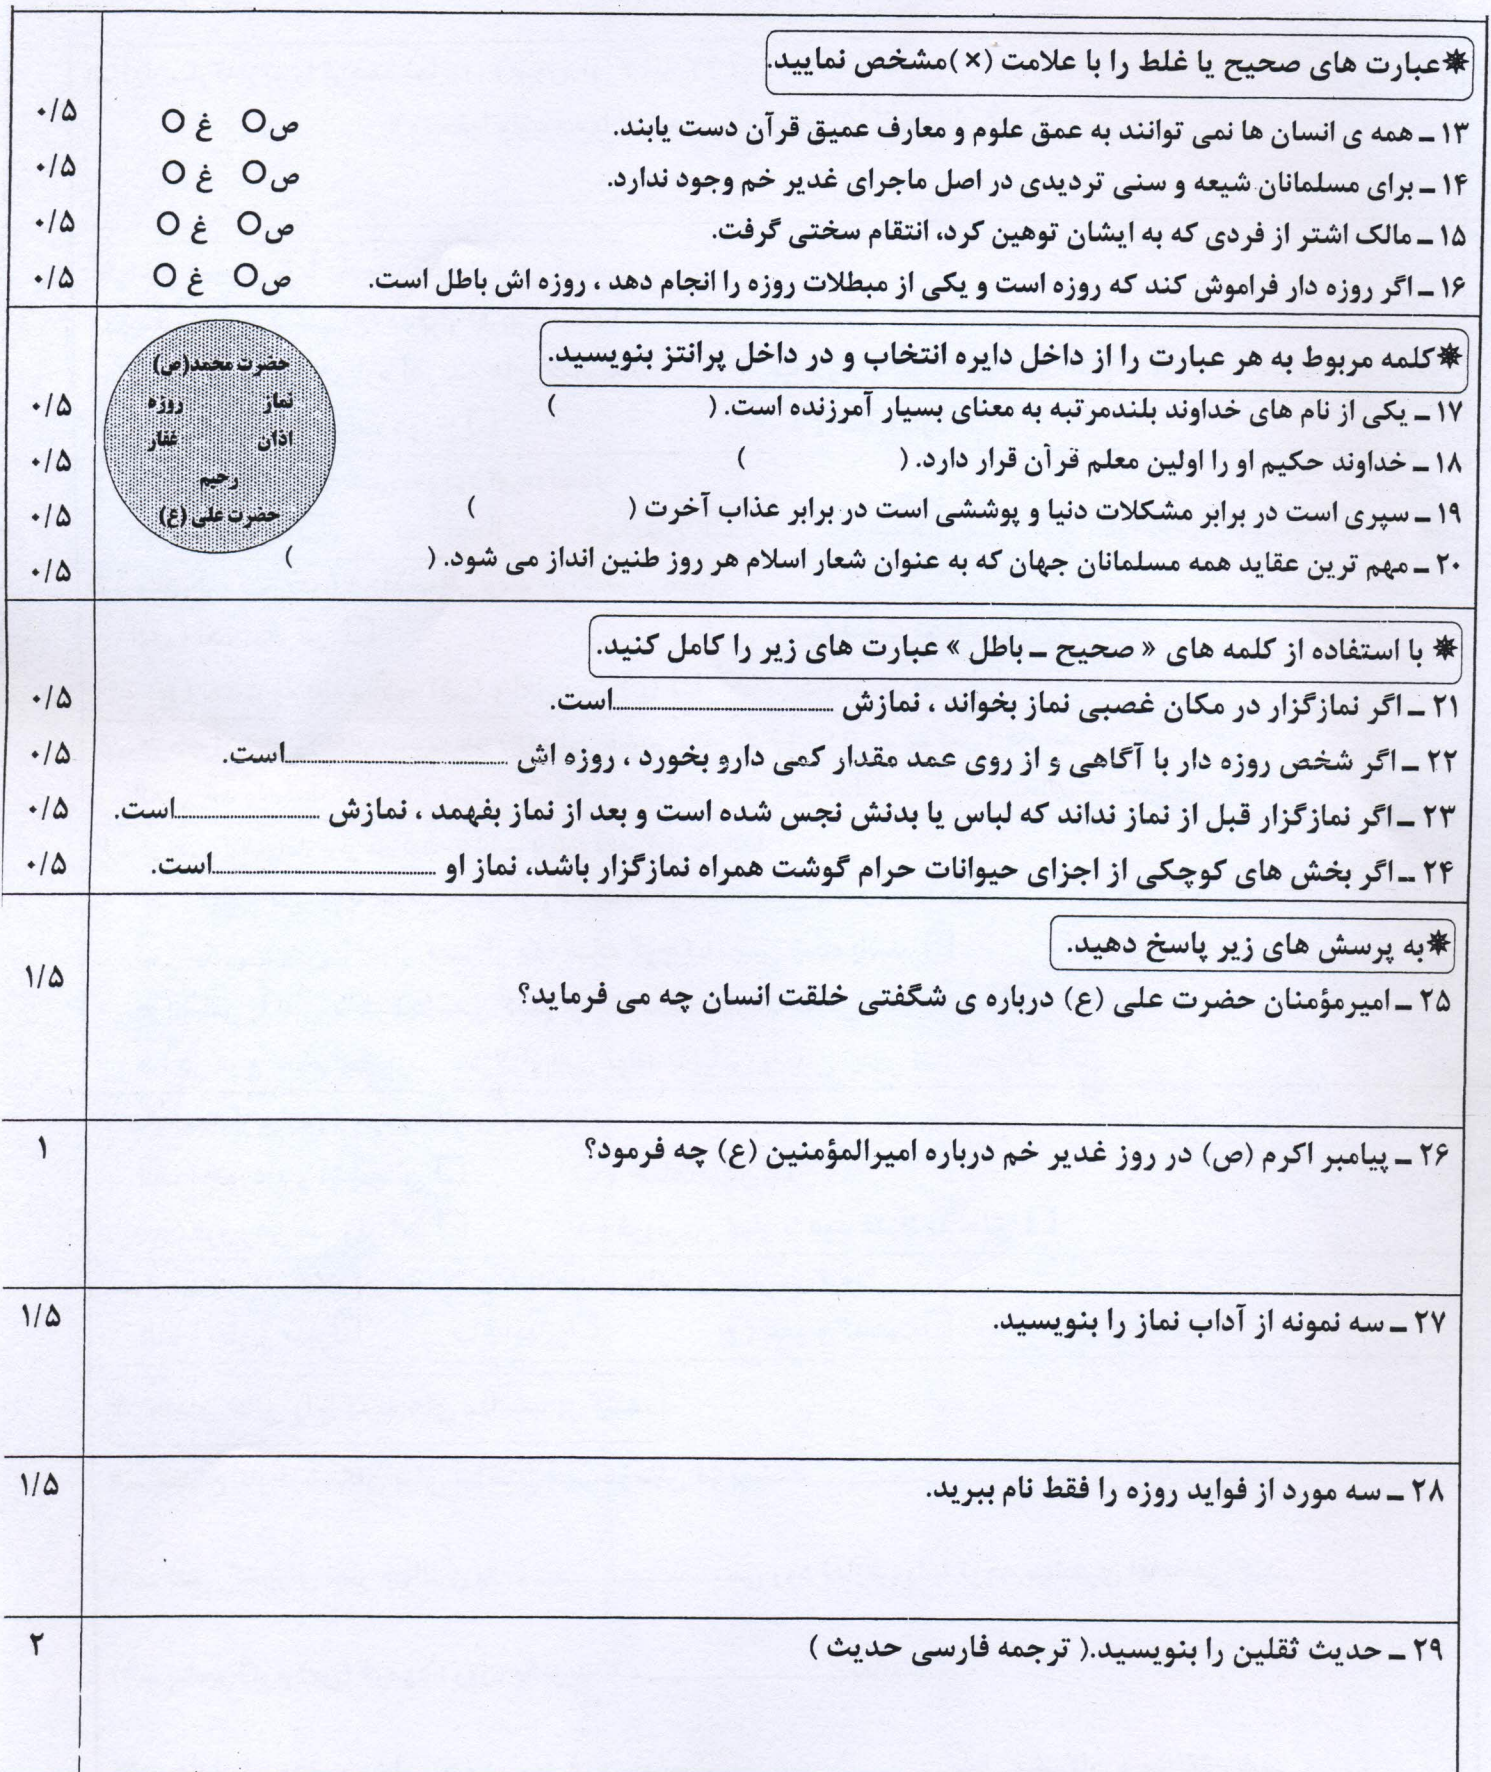 ✵عبارت های صحیح یا غلط را با علامت (×)مشخص نمایید.
۱۳ ـ همه ی انسان ها نمی توانند به عمق علوم و معارف عمیق قرآن دست یابند. ص○ غ○ ۰/۵
۱۴ ـ برای مسلمانان شیعه و سنی تردیدی در اصل ماجرای غدیر خم وجود ندارد. ص○ غ○ ۰/۵
۱۵ ـ مالک اشتر از فردی که به ایشان توهین کرد، انتقام سختی گرفت. ص○ غ○ ۰/۵
۱۶ ـ اگر روزه دار فراموش کند که روزه است و یکی از مبطلات روزه را انجام دهد ، روزه اش باطل است. ص○ غ○ ۰/۵
✵کلمه مربوط به هر عبارت را از داخل دایره انتخاب و در داخل پرانتز بنویسید.
۱۷ ـ یکی از نام های خداوند بلندمرتبه به معنای بسیار آمرزنده است. ( ) ۰/۵
۱۸ ـ خداوند حکیم او را اولین معلم قرآن قرار دارد. ( ) ۰/۵
۱۹ ـ سپری است در برابر مشکلات دنیا و پوششی است در برابر عذاب آخرت ( ) ۰/۵
۲۰ ـ مهم ترین عقاید همه مسلمانان جهان که به عنوان شعار اسلام هر روز طنین انداز می شود. ( ) ۰/۵
حضرت محمد(ص)
نماز روزه
اذان غفار
رحیم
حضرت علی (ع)
✵ با استفاده از کلمه های « صحیح ـ باطل » عبارت های زیر را کامل کنید.
۲۱ ـ اگر نمازگزار در مکان غصبی نماز بخواند ، نمازش ..................است. ۰/۵
۲۲ ـ اگر شخص روزه دار با آگاهی و از روی عمد مقدار کمی دارو بخورد ، روزه اش ..................است. ۰/۵
۲۳ ـ اگر نمازگزار قبل از نماز نداند که لباس یا بدنش نجس شده است و بعد از نماز بفهمد ، نمازش ..................است. ۰/۵
۲۴ ـ اگر بخش های کوچکی از اجزای حیوانات حرام گوشت همراه نمازگزار باشد، نماز او ..................است. ۰/۵
✵به پرسش های زیر پاسخ دهید.
۲۵ ـ امیرمؤمنان حضرت علی (ع) درباره ی شگفتی خلقت انسان چه می فرماید؟ ۱/۵
۲۶ ـ پیامبر اکرم (ص) در روز غدیر خم درباره امیرالمؤمنین (ع) چه فرمود؟ ۱
۲۷ ـ سه نمونه از آداب نماز را بنویسید. ۱/۵
۲۸ ـ سه مورد از فواید روزه را فقط نام ببرید. ۱/۵
۲۹ ـ حدیث ثقلین را بنویسید.( ترجمه فارسی حدیث ) ۲